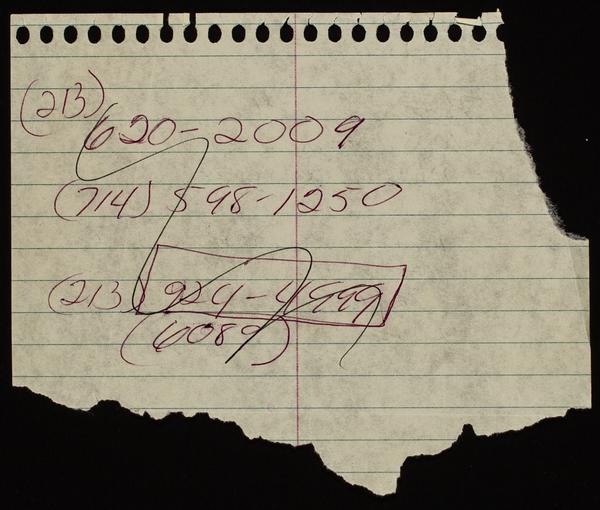 (213) 620-2009
(714) 598-1250
(213) 924-4999
(6089)